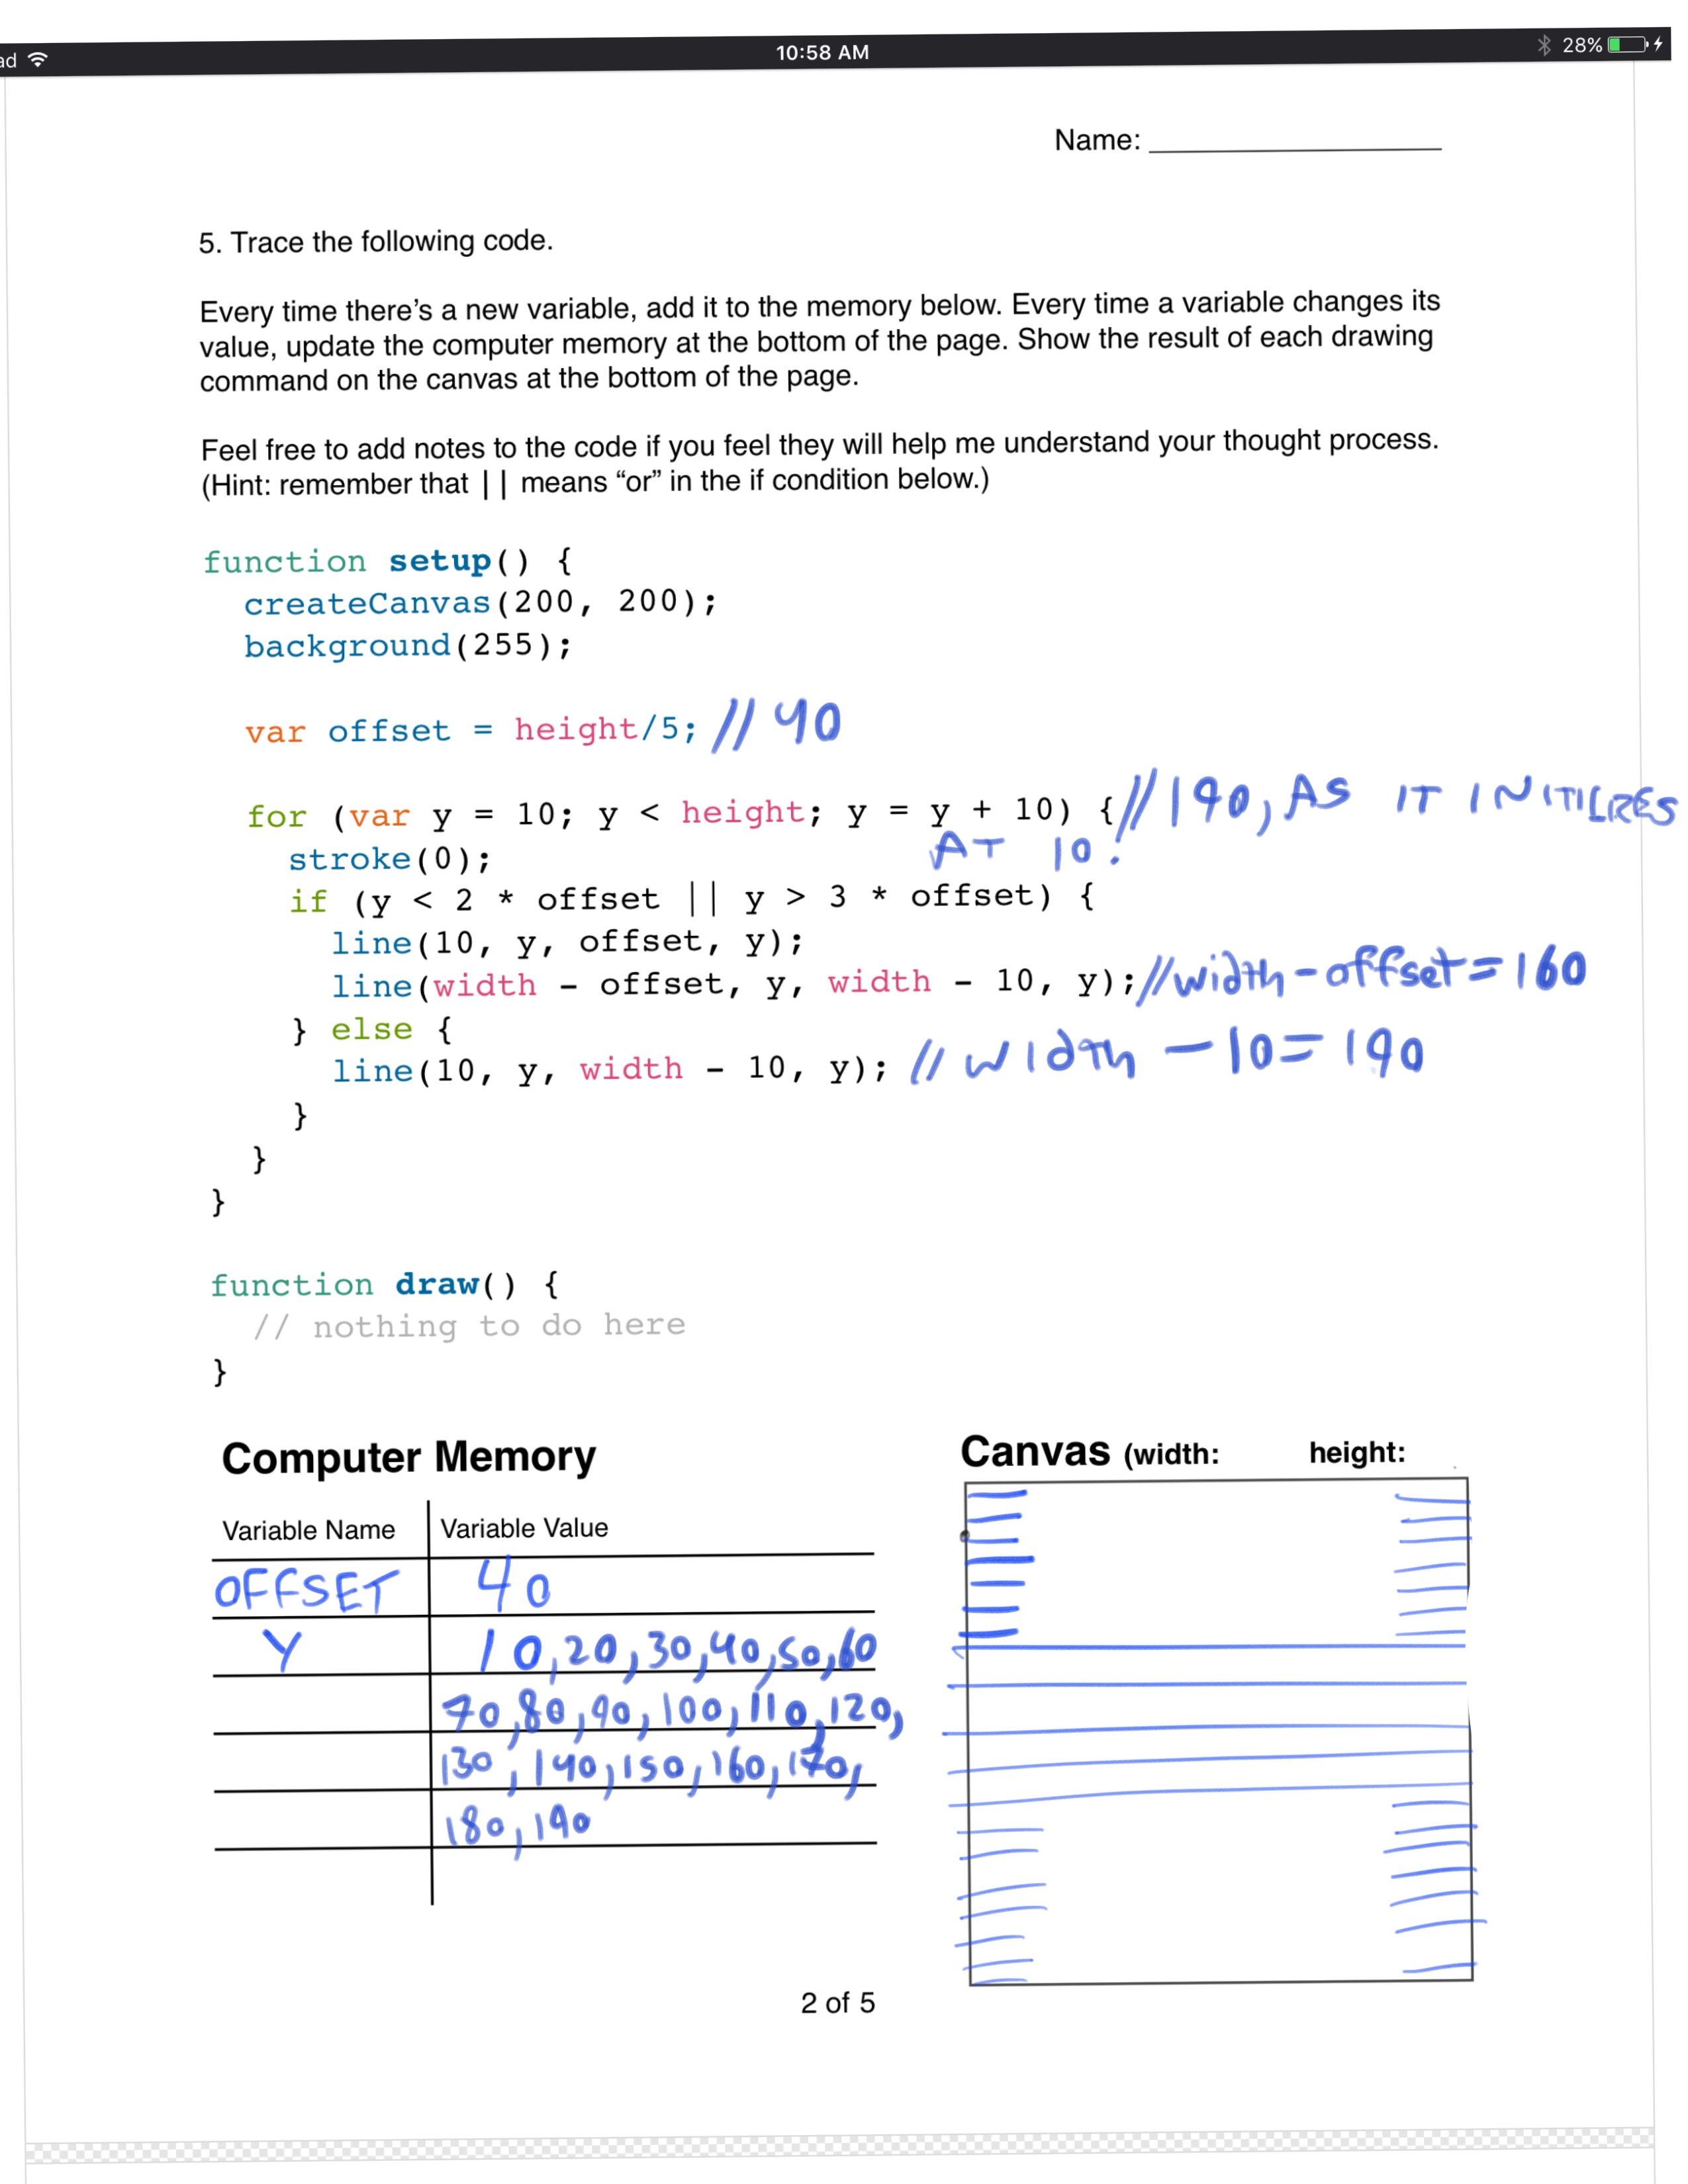 ad 10:58 AM 28%
Name:
5. Trace the following code.
Every time there's a new variable, add it to the memory below. Every time a variable changes its
value, update the computer memory at the bottom of the page. Show the result of each drawing
command on the canvas at the bottom of the page.
Feel free to add notes to the code if you feel they will help me understand your thought process.
(Hint: remember that || means “or” in the if condition below.)
function setup() {
createCanvas(200, 200);
background(255);
var offset = height/5; // 40
for (var y = 10; y < height; y = y + 10) { // 190, AS IT INITILIZES
AT 10.
stroke(0);
if (y < 2 * offset || y > 3 * offset) {
line(10, y, offset, y);
line(width - offset, y, width - 10, y); // width - offset = 160
} else {
line(10, y, width - 10, y); // width - 10 = 190
}
}
}
function draw() {
// nothing to do here
}
Computer Memory
Variable Name Variable Value
OFFSET 40
Y 10,20,30,40,50,60
70,80,90,100,110,120,
130,140,150,160,170,
180,190
Canvas (width: height:
2 of 5